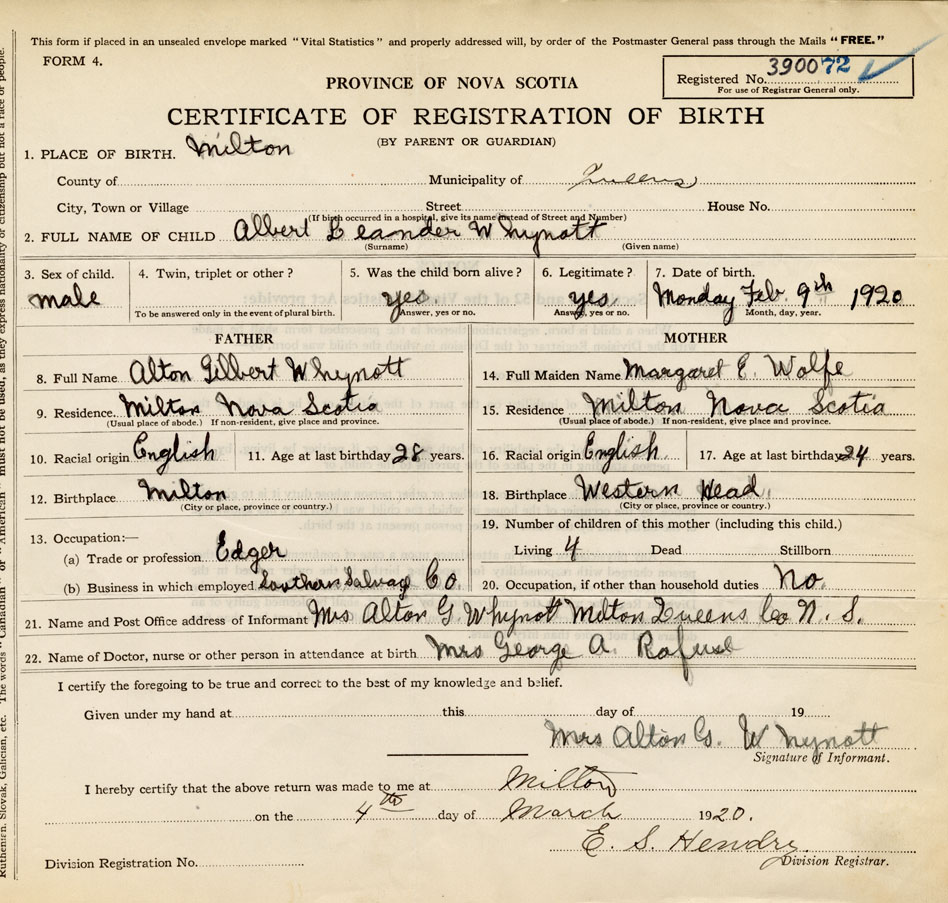 This form if placed in an unsealed envelope marked "Vital Statistics" and properly addressed will, by order of the Postmaster General pass through the Mails "FREE."
FORM 4.
Registered No. 390072
For use of Registrar General only.
PROVINCE OF NOVA SCOTIA
CERTIFICATE OF REGISTRATION OF BIRTH
(BY PARENT OR GUARDIAN)
1. PLACE OF BIRTH. Milton
County of Municipality of Queens
City, Town or Village Street House No.
(If birth occurred in a hospital, give its name instead of Street and Number)
2. FULL NAME OF CHILD Albert Leander Whynott
(Surname) (Given name)
3. Sex of child. 4. Twin, triplet or other? 5. Was the child born alive? 6. Legitimate? 7. Date of birth.
male yes yes Monday Feb. 9th 1920
To be answered only in the event of plural birth. Answer, yes or no. Answer, yes or no. Month, day, year.
FATHER MOTHER
8. Full Name Alton Gilbert Whynott 14. Full Maiden Name Margaret E. Wolfe
9. Residence. Milton Nova Scotia 15. Residence Milton Nova Scotia
(Usual place of abode.) If non-resident, give place and province. (Usual place of abode.) If non-resident, give place and province.
10. Racial origin English 11. Age at last birthday 28 years. 16. Racial origin English 17. Age at last birthday 24 years.
12. Birthplace Milton 18. Birthplace Western Head
(City or place, province or country.) (City or place, province or country.)
13. Occupation:— 19. Number of children of this mother (including this child.)
(a) Trade or profession Edger Living 4 Dead Stillborn
(b) Business in which employed Southern Salvage Co. 20. Occupation, if other than household duties No.
21. Name and Post Office address of Informant Mrs Alton G. Whynott Milton Queens Co N. S.
22. Name of Doctor, nurse or other person in attendance at birth Mrs George A. Rafuse
I certify the foregoing to be true and correct to the best of my knowledge and belief.
Given under my hand at this day of 19
Mrs Alton G. Whynott
Signature of Informant.
I hereby certify that the above return was made to me at Milton
on the 4th day of March 1920.
E. S. Hendry
Division Registrar.
Division Registration No.
Ruthenian, Slovak, Galician, etc. The words "Canadian" or "American" must not be used, as they express nationality or citizenship but not a race or people.